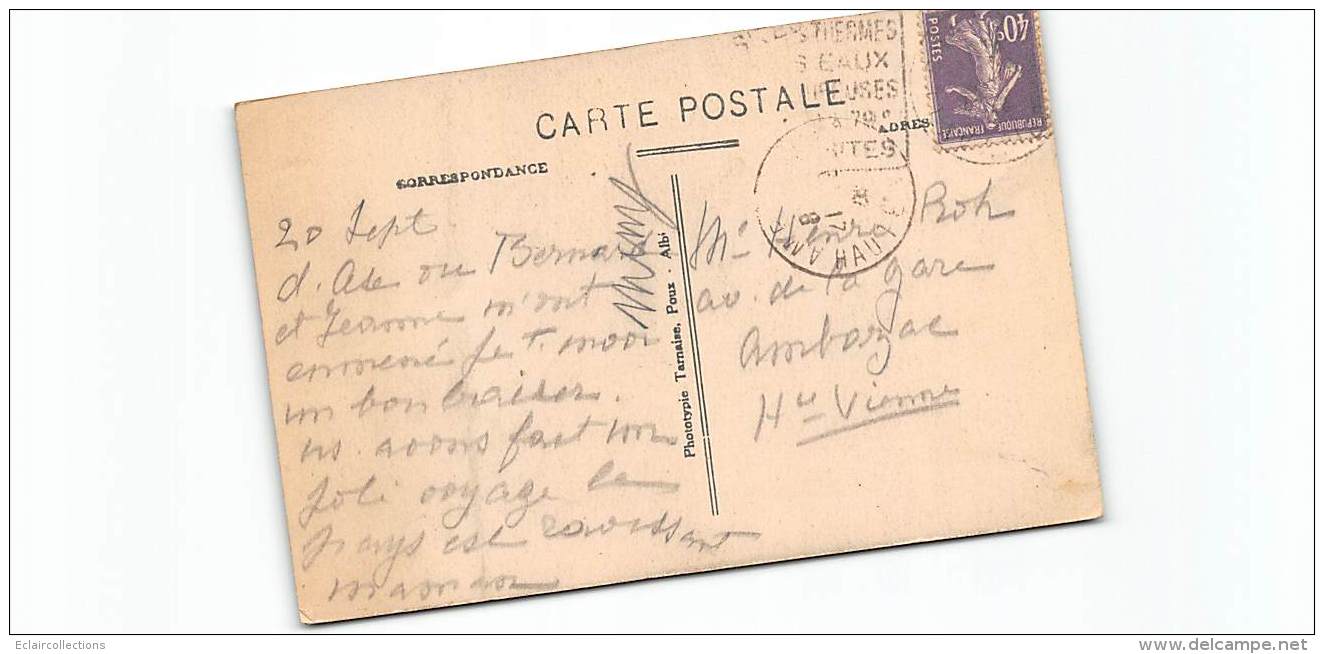 CARTE POSTALE
CORRESPONDANCE
ADRES
THERMES
EAUX
REPUBLIQUE FRANCAISE
POSTES
40c
20 Sept
d'Ax ou Bernard
et Jeanne m'ont
emmené je t'envoi
un bon baiser.
ns avons fait un
joli voyage le
pays est ravissant
maman
Mimy
Phototypie Tarnaise, Poux - Albi
Mr Henri
av. de la gare
Ambazac
Hte Vienne
Eclaircollections
delcampe.net